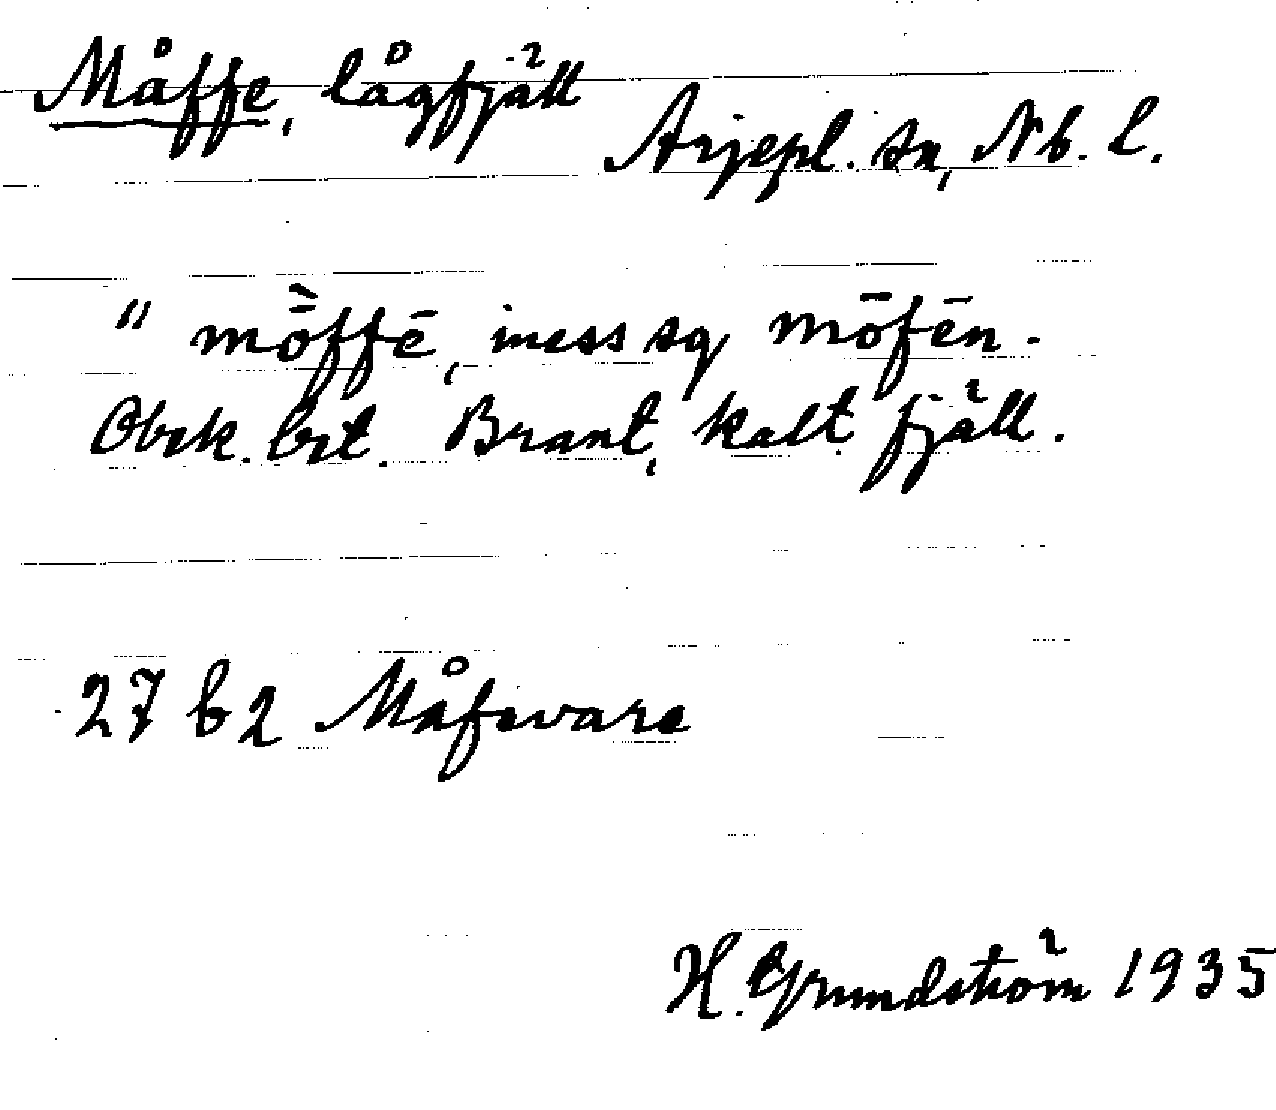 Måffe, lågfjäll
Arjepl. sn, Nb. l.
" mṑffē, iness sg mōfēn.
Obek. bet. Brant, kalt fjäll.
27 b2 Måfevare
H. Grundström 1935